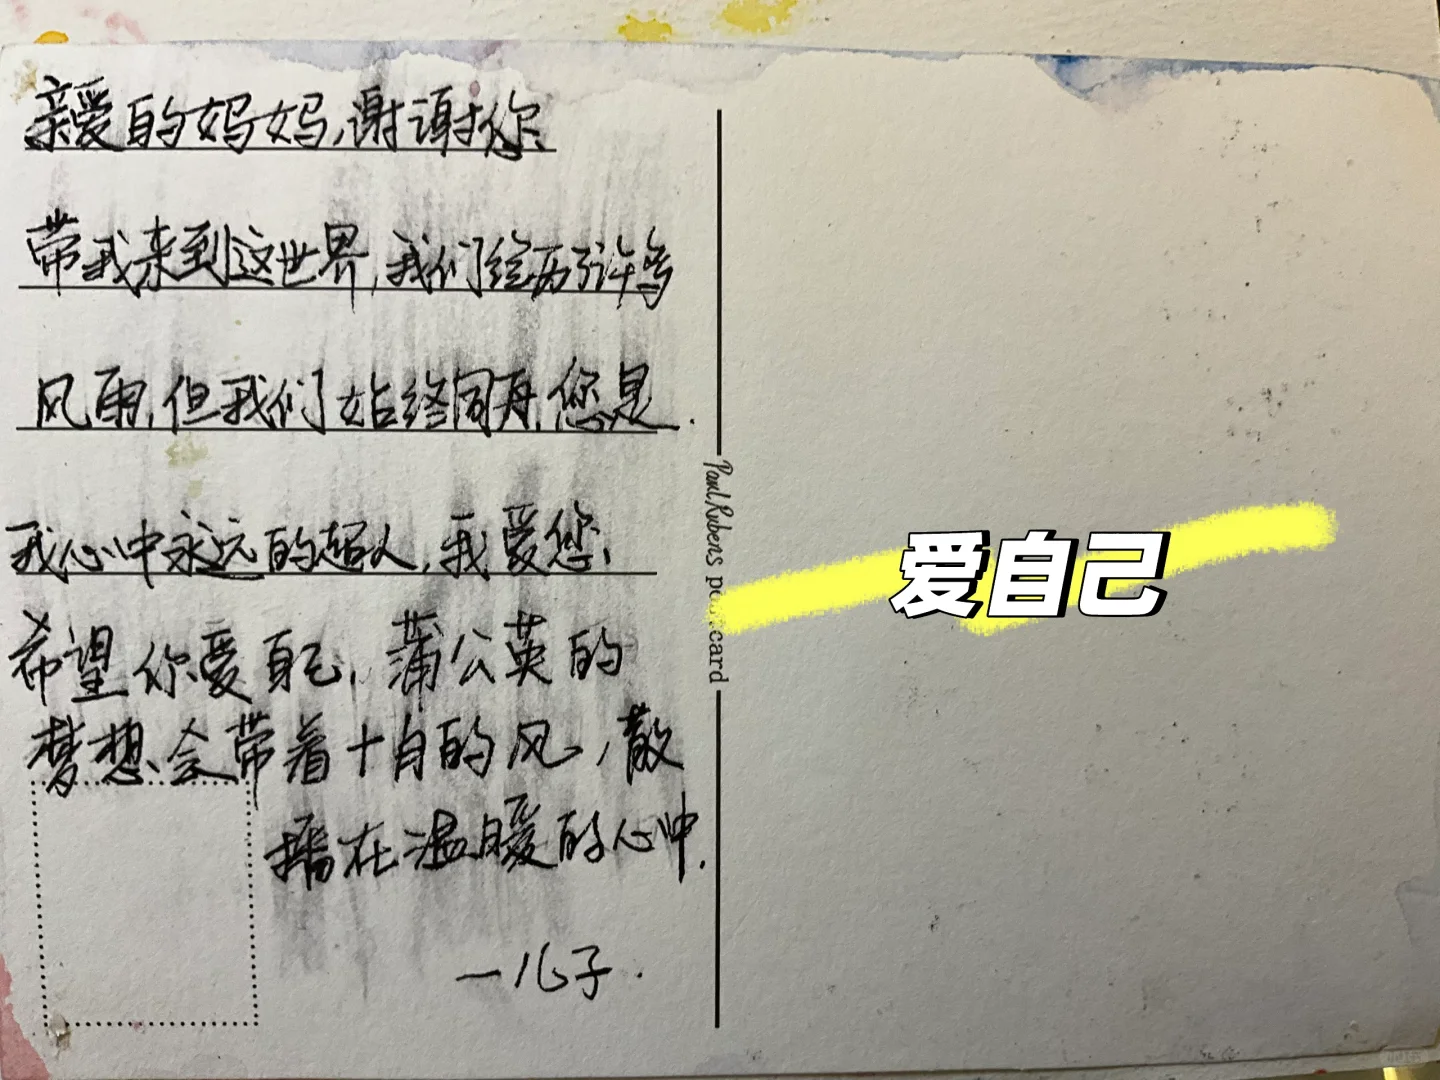 亲爱的妈妈,谢谢你
带我来到这世界,我们经历了许多
风雨,但我们始终同舟,您是
我心中永远的超人,我爱您,
希望你爱自己,蒲公英的
梦想会带着十月的风,散
播在温暖的心中.
一儿子.
Paul Rubens postcard
爱自己